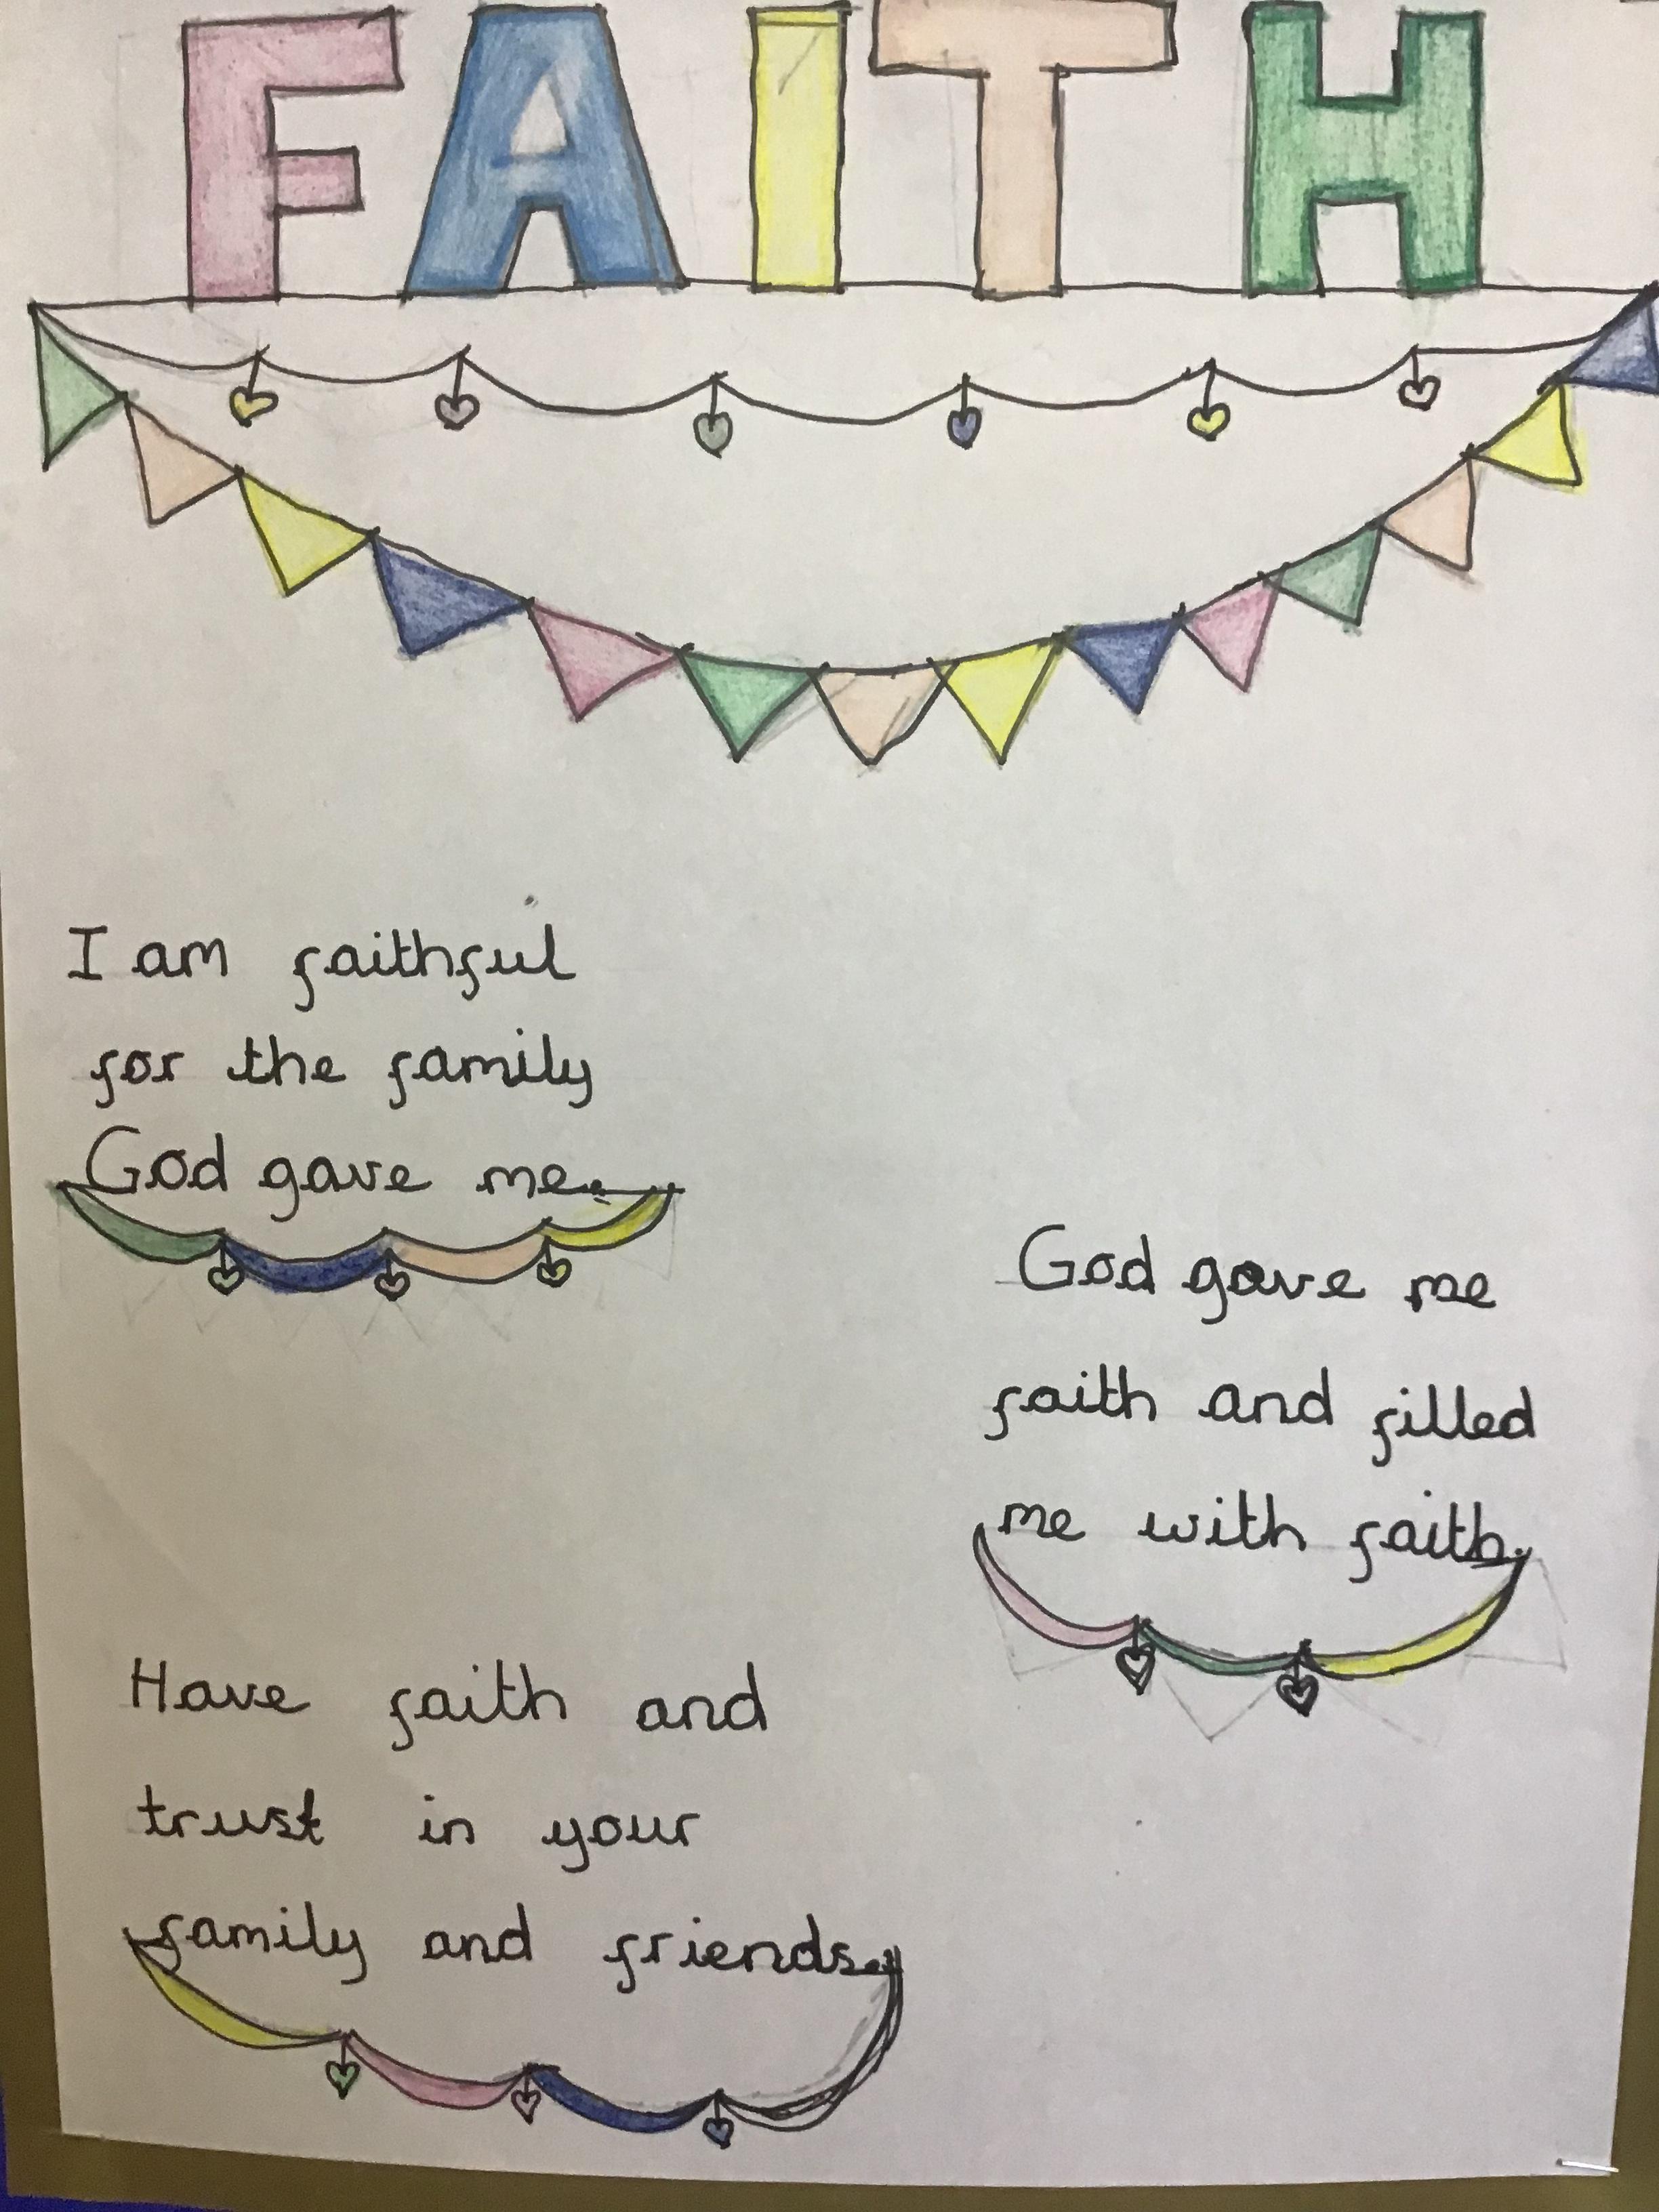 FAITH
I am faithful
for the family
God gave me.
God gave me
faith and filled
me with faith.
Have faith and
trust in your
family and friends.